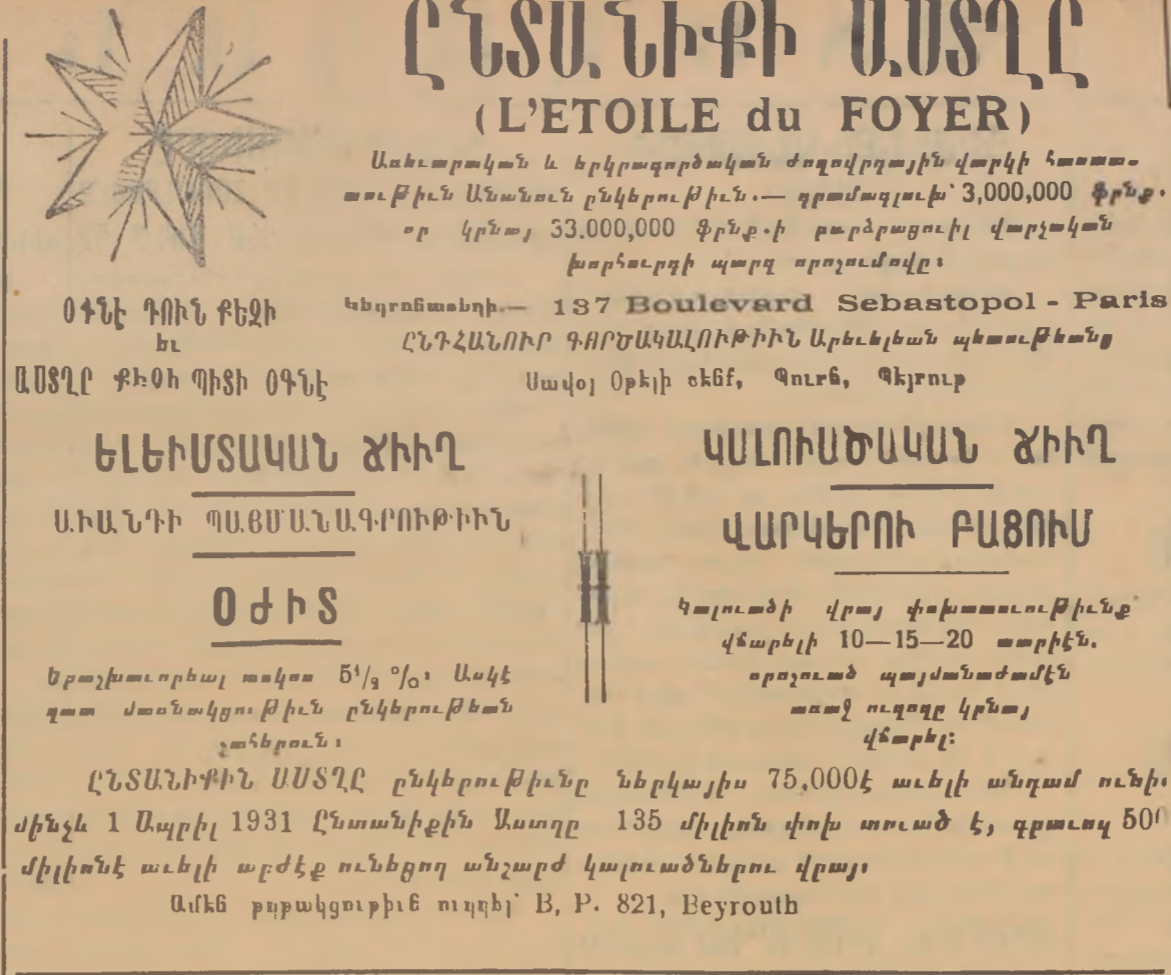 ԸՆՏԱՆԻՔԻ ԱՍՏՂԸ
(L'ETOILE du FOYER)
Առեւտրական և երկրագործական ժողովրդային վարկի հաստա-
տութիւն Անանուն ընկերութիւն.— դրամագլուխ՝ 3,000,000 ֆրնք.
որ կրնայ 33.000,000 ֆրնք.ի բարձրացուիլ վարչական
խորհուրդի պարզ որոշումովը։
Կեդրոնատեղի.— 137 Boulevard Sebastopol - Paris
ԸՆԴՀԱՆՈՒՐ ԳՈՐԾԱԿԱԼՈՒԹԻՒՆ Արեւելեան պետութեանց
Սավօյ Օթէլի շէնք, Պուրճ, Պէյրութ
ՕԳՆԷ ԴՈՒՆ ՔԵԶԻ
եւ
ԱՍՏՂԸ ՔԵԶԻ ՊԻՏԻ ՕԳՆԷ
ԵԼԵՒՄՏԱԿԱՆ ՃԻՒՂ
ԱՒԱՆԴԻ ՊԱՅՄԱՆԱԳՐՈՒԹԻՒՆ
ՕԺԻՏ
Երաշխաւորեալ տոկոս 5¹/₂ %։ Ասկէ
զատ մասնակցութիւն ընկերութեան
շահերուն։
ԿԱԼՈՒԱԾԱԿԱՆ ՃԻՒՂ
ՎԱՐԿԵՐՈՒ ԲԱՑՈՒՄ
Կալուածի վրայ փոխատուութիւնք
վճարելի 10—15—20 տարիէն.
որոշուած պայմանաժամէն
առաջ ուզողը կրնայ
վճարել:
ԸՆՏԱՆԻՔԻՆ ԱՍՏՂԸ ընկերութիւնը ներկայիս 75,000է աւելի անդամ ունի.
մինչև 1 Ապրիլ 1931 Ընտանիքին Աստղը 135 միլիոն փոխ տուած է, գրաւոյ 500
միլիոնէ աւելի արժէք ունեցող անշարժ կալուածներու վրայ։
Ամէն թղթակցութիւն ուղղել՝ B, P. 821, Beyrouth